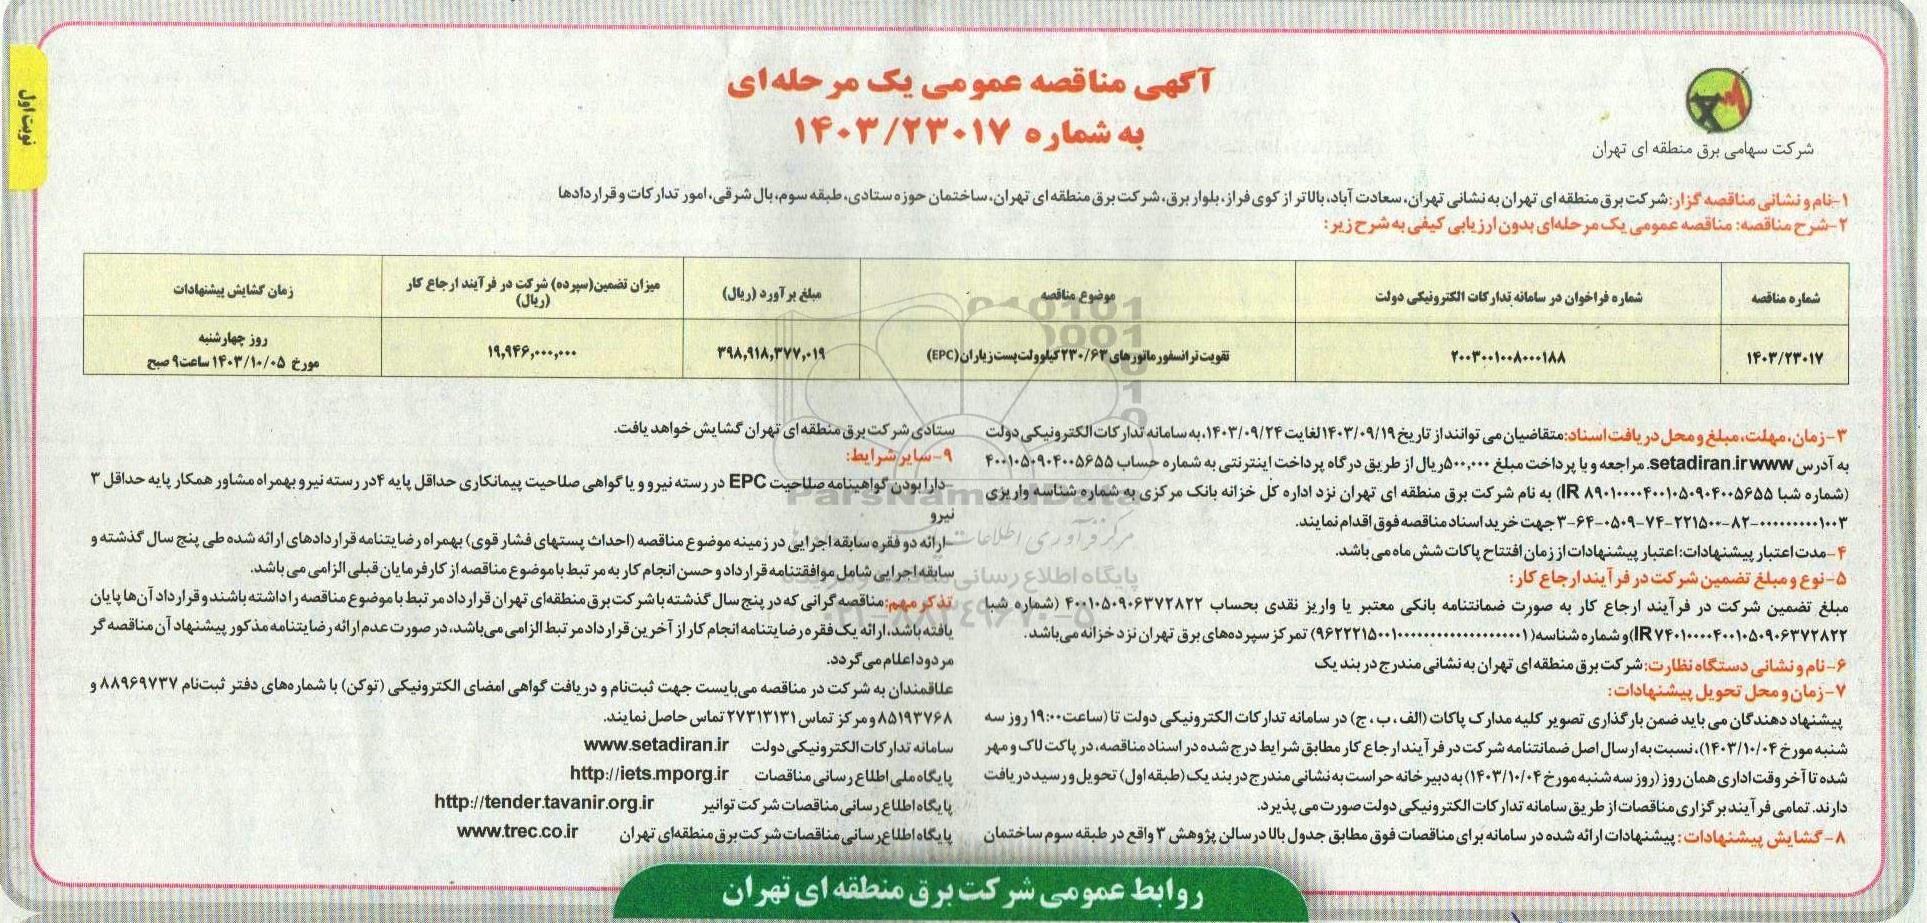 نوبت اول
آگهی مناقصه عمومی یک مرحله‌ای
به شماره ۱۴۰۳/۲۳۰۱۷
شرکت سهامی برق منطقه ای تهران
۱-نام و نشانی مناقصه گزار: شرکت برق منطقه ای تهران به نشانی تهران، سعادت آباد، بالاتر از کوی فراز، بلوار برق، شرکت برق منطقه ای تهران، ساختمان حوزه ستادی، طبقه سوم، بال شرقی، امور تدارکات و قراردادها
۲-شرح مناقصه: مناقصه عمومی یک مرحله‌ای بدون ارزیابی کیفی به شرح زیر:
شماره مناقصه
شماره فراخوان در سامانه تدارکات الکترونیکی دولت
موضوع مناقصه
مبلغ برآورد (ریال)
میزان تضمین(سپرده) شرکت در فرآیند ارجاع کار (ریال)
زمان گشایش پیشنهادات
۱۴۰۳/۲۳۰۱۷
۲۰۰۳۰۰۱۰۰۸۰۰۰۱۸۸
تقویت ترانسفورماتورهای ۲۳۰/۶۳ کیلوولت پست زیاران (EPC)
۳۹۸,۹۱۸,۳۷۷,۰۱۹
۱۹,۹۴۶,۰۰۰,۰۰۰
روز چهارشنبه
مورخ ۱۴۰۳/۱۰/۰۵ ساعت ۹ صبح
۳-زمان، مهلت، مبلغ و محل دریافت اسناد: متقاضیان می توانند از تاریخ ۱۴۰۳/۰۹/۱۹ لغایت ۱۴۰۳/۰۹/۲۴، به سامانه تدارکات الکترونیکی دولت
به آدرس setadiran.ir www. مراجعه و با پرداخت مبلغ ۵۰۰,۰۰۰ ریال از طریق درگاه پرداخت اینترنتی به شماره حساب ۴۰۰۱۰۵۰۹۰۴۰۰۵۶۵۵
(شماره شبا IR ۸۹۰۱۰۰۰۰۴۰۰۱۰۵۰۹۰۴۰۰۵۶۵۵) به نام شرکت برق منطقه ای تهران نزد اداره کل خزانه بانک مرکزی به شماره شناسه واریزی
جهت خرید اسناد مناقصه فوق اقدام نمایند.
۴-مدت اعتبار پیشنهادات: اعتبار پیشنهادات از زمان افتتاح پاکات شش ماه می باشد.
۵-نوع و مبلغ تضمین شرکت در فرآیند ارجاع کار:
مبلغ تضمین شرکت در فرآیند ارجاع کار به صورت ضمانتنامه بانکی معتبر یا واریز نقدی بحساب ۴۰۰۱۰۵۰۹۰۶۳۷۲۸۲۲ (شماره شبا
IR۷۴۰۱۰۰۰۰۴۰۰۱۰۵۰۹۰۶۳۷۲۸۲۲) و شماره شناسه تمرکز سپرده‌های برق تهران نزد خزانه می‌باشد.
۶-نام و نشانی دستگاه نظارت: شرکت برق منطقه ای تهران به نشانی مندرج در بند یک
۷-زمان و محل تحویل پیشنهادات:
پیشنهاد دهندگان می باید ضمن بارگذاری تصویر کلیه مدارک پاکات (الف، ب، ج) در سامانه تدارکات الکترونیکی دولت تا (ساعت ۱۹:۰۰ روز سه
شنبه مورخ ۱۴۰۳/۱۰/۰۴)، نسبت به ارسال اصل ضمانتنامه شرکت در فرآیند ارجاع کار مطابق شرایط درج شده در اسناد مناقصه، در پاکت لاک و مهر
شده تا آخر وقت اداری همان روز (روز سه شنبه مورخ ۱۴۰۳/۱۰/۰۴) به دبیرخانه حراست به نشانی مندرج در بند یک (طبقه اول) تحویل و رسید دریافت
دارند. تمامی فرآیند برگزاری مناقصات از طریق سامانه تدارکات الکترونیکی دولت صورت می پذیرد.
۸-گشایش پیشنهادات: پیشنهادات ارائه شده در سامانه برای مناقصات فوق مطابق جدول بالا در سالن پژوهش ۳ واقع در طبقه سوم ساختمان
ستادی شرکت برق منطقه ای تهران گشایش خواهد یافت.
۹-سایر شرایط:
-دارا بودن گواهینامه صلاحیت EPC در رسته نیرو و یا گواهی صلاحیت پیمانکاری حداقل پایه ۴ در رسته نیرو بهمراه مشاور همکار پایه حداقل ۳
نیرو
-ارائه دو فقره سابقه اجرایی در زمینه موضوع مناقصه (احداث پستهای فشار قوی) بهمراه رضایتنامه قراردادهای ارائه شده طی پنج سال گذشته و
سابقه اجرایی شامل موافقتنامه قرارداد و حسن انجام کار به مرتبط با موضوع مناقصه از کارفرمایان قبلی الزامی می باشد.
تذکر مهم: مناقصه گرانی که در پنج سال گذشته با شرکت برق منطقه‌ای تهران قرارداد مرتبط با موضوع مناقصه را داشته باشند و قرارداد آن‌ها پایان
یافته باشد، ارائه یک فقره رضایتنامه انجام کار از آخرین قرارداد مرتبط الزامی می‌باشد، در صورت عدم ارائه رضایتنامه مذکور پیشنهاد آن مناقصه گر
مردود اعلام می گردد.
علاقمندان به شرکت در مناقصه می‌بایست جهت ثبت‌نام و دریافت گواهی امضای الکترونیکی (توکن) با شماره‌های دفتر ثبت‌نام ۸۸۹۶۹۷۳۷ و
۸۵۱۹۳۷۶۸ و مرکز تماس ۲۷۳۱۳۱۳۱ تماس حاصل نمایند.
سامانه تدارکات الکترونیکی دولت www.setadiran.ir
پایگاه ملی اطلاع رسانی مناقصات http://iets.mporg.ir
پایگاه اطلاع رسانی مناقصات شرکت توانیر http://tender.tavanir.org.ir
پایگاه اطلاع رسانی مناقصات شرکت برق منطقه‌ای تهران www.trec.co.ir
روابط عمومی شرکت برق منطقه ای تهران
ParsNamadData